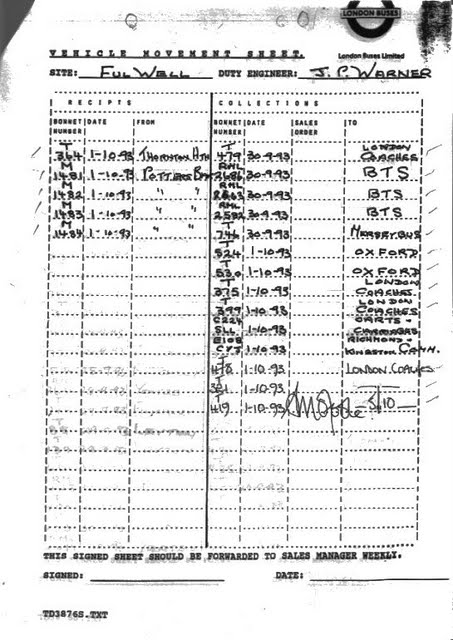 LONDON BUSES
VEHICLE MOVEMENT SHEET.
London Buses Limited
SITE: FULWELL DUTY ENGINEER: J. P. WARNER
RECEIPTS COLLECTIONS
BONNET NUMBER DATE FROM BONNET NUMBER DATE SALES ORDER TO
T 364 1-10-93 THORNTON HTH T 479 30-9-93 LONDON COACHES
M 1481 1-10-93 POTTERS BAR RML 2686 30-9-93 BTS
M 1482 1-10-93 " " RML 2663 30-9-93 BTS
M 1483 1-10-93 " " RML 2582 30-9-93 BTS
M 1484 1-10-93 " " T 746 30-9-93 MERSEYBUS
T 524 1-10-93 OXFORD
T 530 1-10-93 OXFORD
T 375 1-10-93 LONDON COACHES
T 399 1-10-93 LONDON COACHES
SLL 1-10-93 CARTS - CARRIAGES
CYT 1-10-93 RICHMOND - KINGSTON CONN.
T 478 1-10-93 LONDON COACHES
T 1-10-93
T 419 1-10-93 3/10
THIS SIGNED SHEET SHOULD BE FORWARDED TO SALES MANAGER WEEKLY.
SIGNED: DATE:
TD3876S.TXT